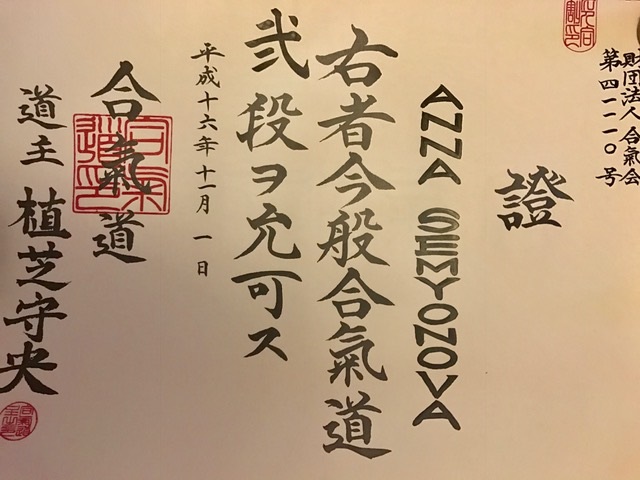 財団法人 合氣会
第四一一一〇号
證
ANNA SEMYONOVA
右者今般合氣道
弐段ヲ允可ス
平成十六年十一月一日
合氣道
道主 植芝守央